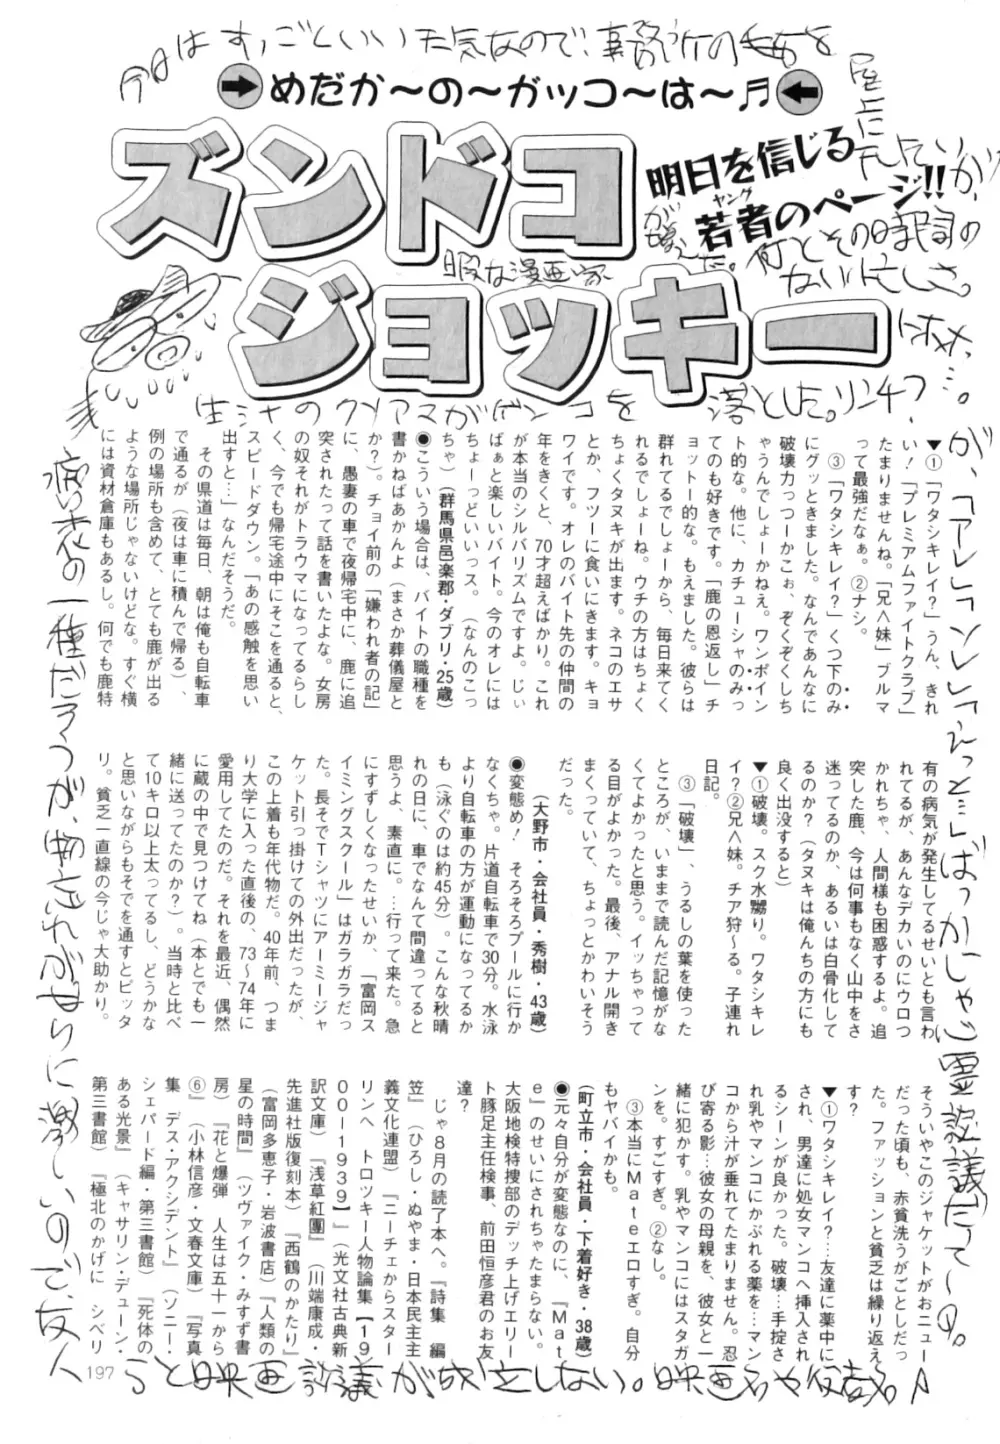 今日はすっごくいい天気なので、事務所の
めだか〜の〜ガッコ〜は〜♬
ズンドコ
ジョッキー
明日を信じる
若者のページ!!
ヤング
暇な漫画家
何とその時間の
ない忙しさ。
▼①「ワタシキレイ?」うん、きれ
い!「プレミアムファイトクラブ」
たまりませんね。「兄<妹」ブルマ
って最強だなぁ。②ナシ。
③「ワタシキレイ?」くつ下のみ
にグッときました。なんであんなに
破壊力っつーかこぉ、ぞくぞくしち
ゃうんでしょーかねえ。ワンポイン
ト的な。他に、カチューシャのみっ
てのも好きです。「鹿の恩返し」チ
ョットー的な。もえました。彼らは
群れてるでしょーから、毎日来てく
れるでしょーね。ウチの方はちょく
ちょくタヌキが出ます。ネコのエサ
とか、フツーに食いにきます。キョ
ワイです。オレのバイト先の仲間の
年をきくと、70才超えばかり。これ
が本当のシルバリズムですよ。じぃ
ばぁと楽しいバイト。今のオレには
ちょーっどいいっス。(なんのこっ
ちゃ)(群馬県邑楽郡・ダブリ・25歳)
●こういう場合は、バイトの職種を
書かねばあかんよ(まさか葬儀屋と
か?)。チョイ前の「嫌われ者の記」
に、愚妻の車で夜帰宅中に、鹿に追
突されたって話を書いたよな。女房
の奴それがトラウマになってるらし
く、今でも帰宅途中にそこを通ると、
スピードダウン。「あの感触を思い
出すと…」なんだそうだ。
その県道は毎日、朝は俺も自転車
で通るが(夜は車に積んで帰る)、
例の場所も含めて、とても鹿が出る
ような場所じゃないけどな。すぐ横
には資材倉庫もあるし。何でも鹿特
有の病気が発生してるせいとも言わ
れてるが、あんなデカいのにウロつ
かれちゃ、人間様も困惑するよ。追
突した鹿、今は何事もなく山中をさ
迷ってるのか、あるいは白骨化して
るのか?(タヌキは俺んちの方にも
良く出没すると)
▼①破壊。スク水嬲り。ワタシキレ
イ?②兄<妹。チア狩〜る。子連れ
日記。
③「破壊」、うるしの葉を使った
ところが、いままで読んだ記憶がな
くてよかったと思う。イッちゃって
る目がよかった。最後、アナル開き
まくっていて、ちょっとかわいそう
だった。
(大野市・会社員・秀樹・43歳)
●変態め! そろそろプールに行か
なくちゃ。片道自転車で30分。水泳
より自転車の方が運動になってるか
も(泳ぐのは約45分)。こんな秋晴
れの日に、車でなんて間違ってると
思うよ、素直に。…行って来た。急
にすずしくなったせいか、「富岡ス
イミングスクール」はガラガラだっ
た。長そでTシャツにアーミージャ
ケット引っ掛けての外出だったが、
この上着も年代物だ。40年前、つま
り大学に入った直後の、73〜74年に
愛用してたのだ。それを最近、偶然
に蔵の中で見つけてね(本とでも一
緒に送ってたのか?)。当時と比べ
て10キロ以上太ってるし、どうかな
と思いながらもそでを通すとピッタ
リ。貧乏一直線の今じゃ大助かり。
そういやこのジャケットがおニュー
だった頃も、赤貧洗うがごとしだっ
た。ファッションと貧乏は繰り返え
す?
▼①ワタシキレイ?…友達に薬中に
され、男達に処女マンコへ挿入され
るシーンが良かった。破壊…手掟さ
れ乳やマンコにかぶれる薬を…マン
コから汁が垂れてたまりません。忍
び寄る影…彼女の母親を、彼女と一
緒に犯かす。乳やマンコにはスタガ
ンを。すごすぎ。②なし。
③本当にMateエロすぎ。自分
もヤバイかも。
(町立市・会社員・下着好き・38歳)
●元々自分が変態なのに、『Mat
e』のせいにされちゃたまらない。
大阪地検特捜部のデッチ上げエリー
ト豚足主任検事、前田恒彦君のお友
達?
じゃ8月の読了本へ。『詩集 編
笠』(ひろし・ぬやま・日本民主主
義文化連盟)『ニーチェからスター
リンへ トロツキー人物論集【19
00−1939】』(光文社古典新
訳文庫)『浅草紅團』(川端康成・
先進社版復刻本)『西鶴のかたり』
(富岡多恵子・岩波書店)『人類の
星の時間』(ツヴァイク・みすず書
房)『花と爆弾 人生は五十一から
⑥』(小林信彦・文春文庫)『写真
集 デス・アクシデント』(ソニー・
シェパード編・第三書館)『死体の
ある光景』(キャサリン・デューン・
第三書館)『極北のかげに シベリ
が、「アレ」「ソレ」「えっと…」ばっかしゃ心霊談議だて〜の。
病いの一種だろうが、物忘れがやけに激しいので、友人
らと映画談議が成立しない。映画名や役者名
197